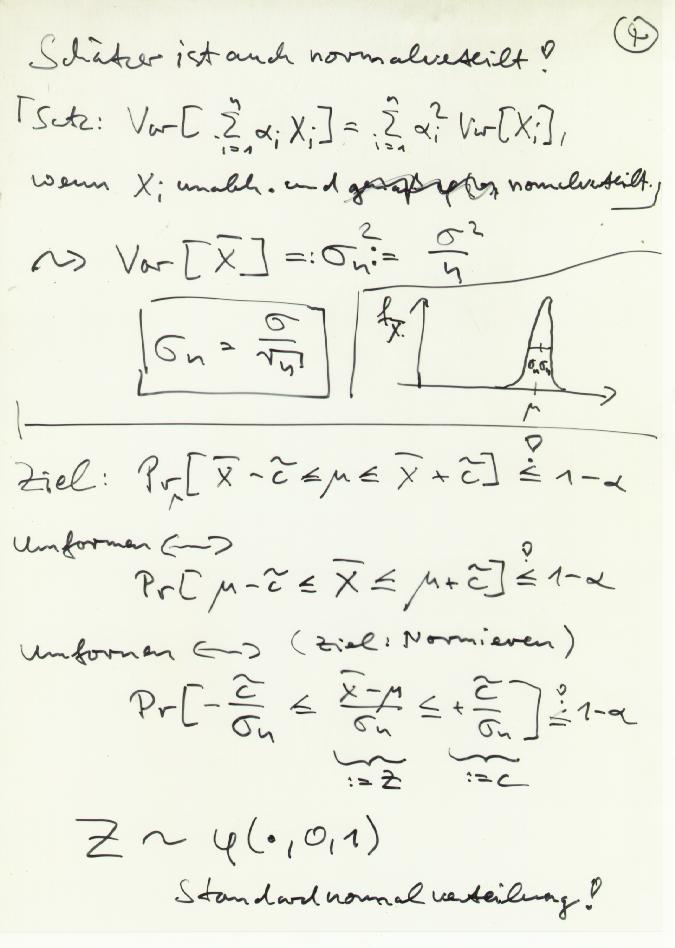 4
Schätzer ist auch normalverteilt!
Satz: Var[ ∑_{i=1}^{n} α_i X_i ] = ∑_{i=1}^{n} α_i² Var[X_i],
wenn X_i unabh. und normalverteilt.
⇝ Var[X̄] =: σ_n² := σ²/n
σ_n = σ/√n
f_X̄
σ_n σ_n
μ
Ziel: Pr_μ[ X̄ - c̃ ≤ μ ≤ X̄ + c̃ ] ≤! 1-α
Umformen ⟷
Pr[ μ - c̃ ≤ X̄ ≤ μ + c̃ ] ≤! 1-α
Umformen ⟷ (Ziel: Normieren)
Pr[ -c̃/σ_n ≤ (X̄-μ)/σ_n ≤ +c̃/σ_n ] ≤! 1-α
:= Z := c
Z ~ φ(·, 0, 1)
Standardnormalverteilung!